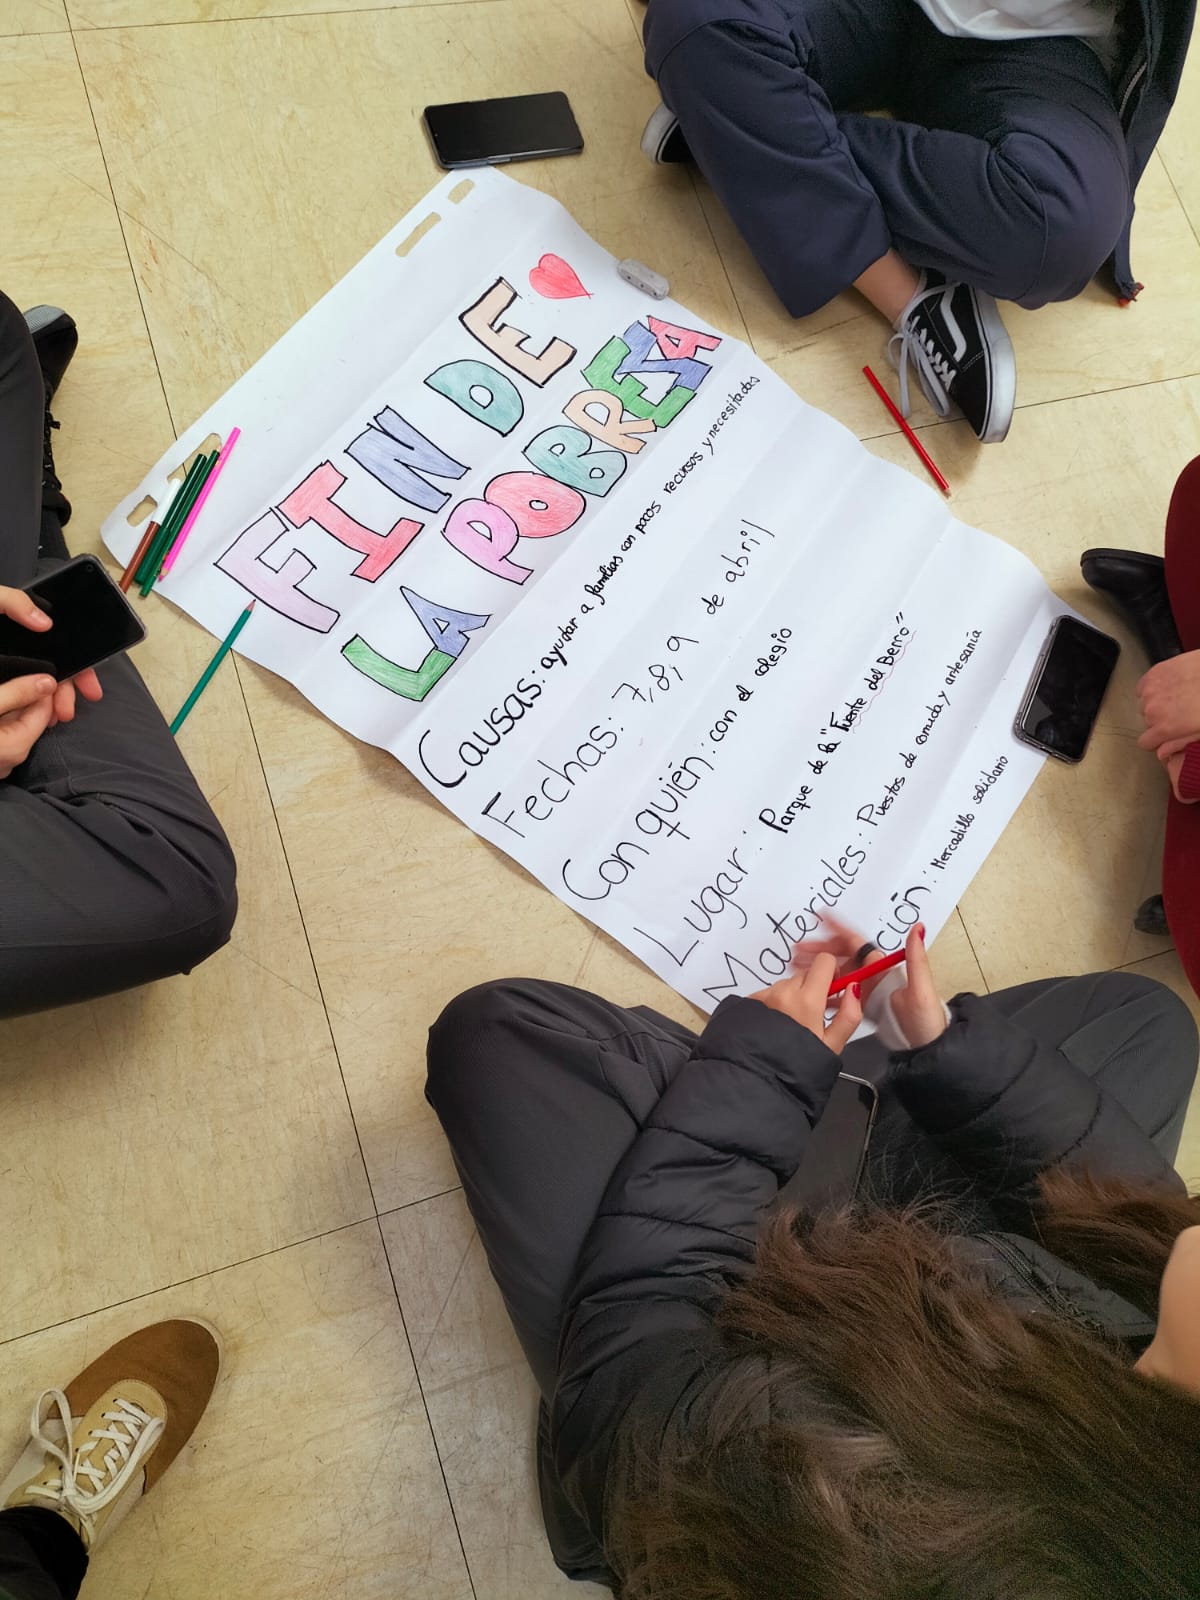 FIN DE
LA POBREZA
Causas: ayudar a familias con pocos recursos y necesitadas
Fechas: 7,8,9 de abril
Con quién: con el colegio
Lugar: Parque de la "Fuente del Berro"
Materiales: Puestos de comida y artesanía
ción: Mercadillo solidario